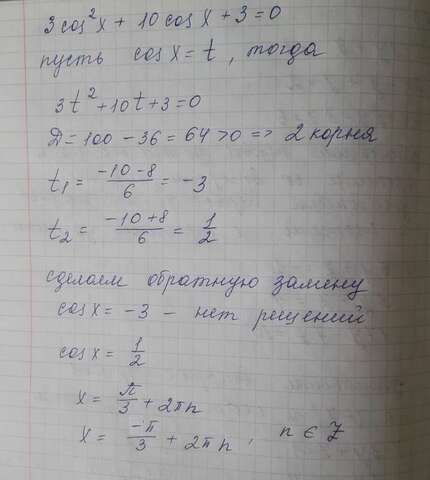 3cos²x + 10cosx + 3 = 0
пусть cosx = t, тогда
3t² + 10t + 3 = 0
D = 100 - 36 = 64 > 0 => 2 корня
t₁ = (-10 - 8)/6 = -3
t₂ = (-10 + 8)/6 = 1/2
сделаем обратную замену
cosx = -3 - нет решений
cosx = 1/2
x = π/3 + 2πn
x = -π/3 + 2πn, n ∈ Z